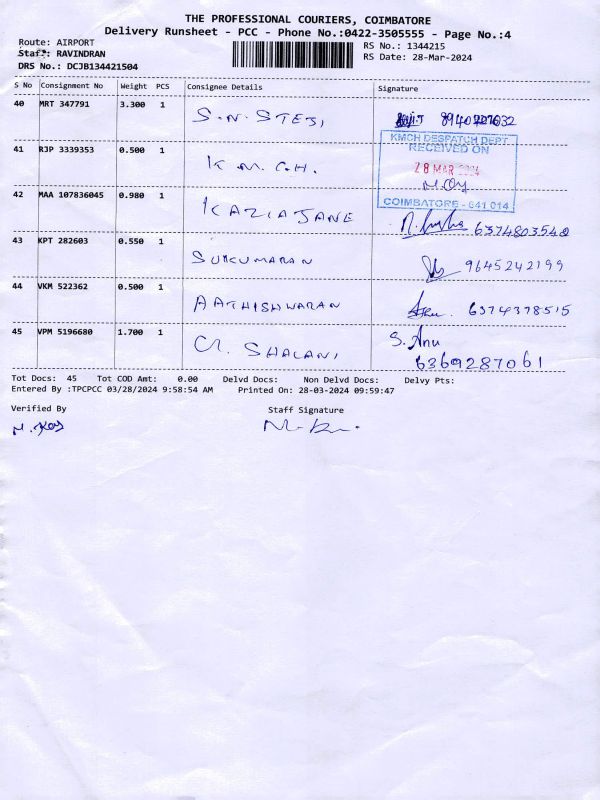 THE PROFESSIONAL COURIERS, COIMBATORE
Delivery Runsheet - PCC - Phone No.:0422-3505555 - Page No.:4
Route: AIRPORT
Staff: RAVINDRAN
DRS No.: DCJB134421504
RS No.: 1344215
RS Date: 28-Mar-2024
S No Consignment No Weight PCS Consignee Details Signature
40 MRT 347791 3.300 1 S.N. STEJI
41 RJP 3339353 0.500 1 K M.C.H.
KMCH DESPATCH DEPT
RECEIVED ON
28 MAR 2024
COIMBATORE - 641 014
42 MAA 107836045 0.980 1 KAZIA JANE 6374803540
43 KPT 282603 0.550 1 SUKUMARAN 9645242199
44 VKM 522362 0.500 1 AATHISHWARAN 6374378515
45 VPM 5196680 1.700 1 SHALANI S. Anu
6369287061
Tot Docs: 45 Tot COD Amt: 0.00 Delvd Docs: Non Delvd Docs: Delvy Pts:
Entered By :TPCPCC 03/28/2024 9:58:54 AM Printed On: 28-03-2024 09:59:47
Verified By Staff Signature